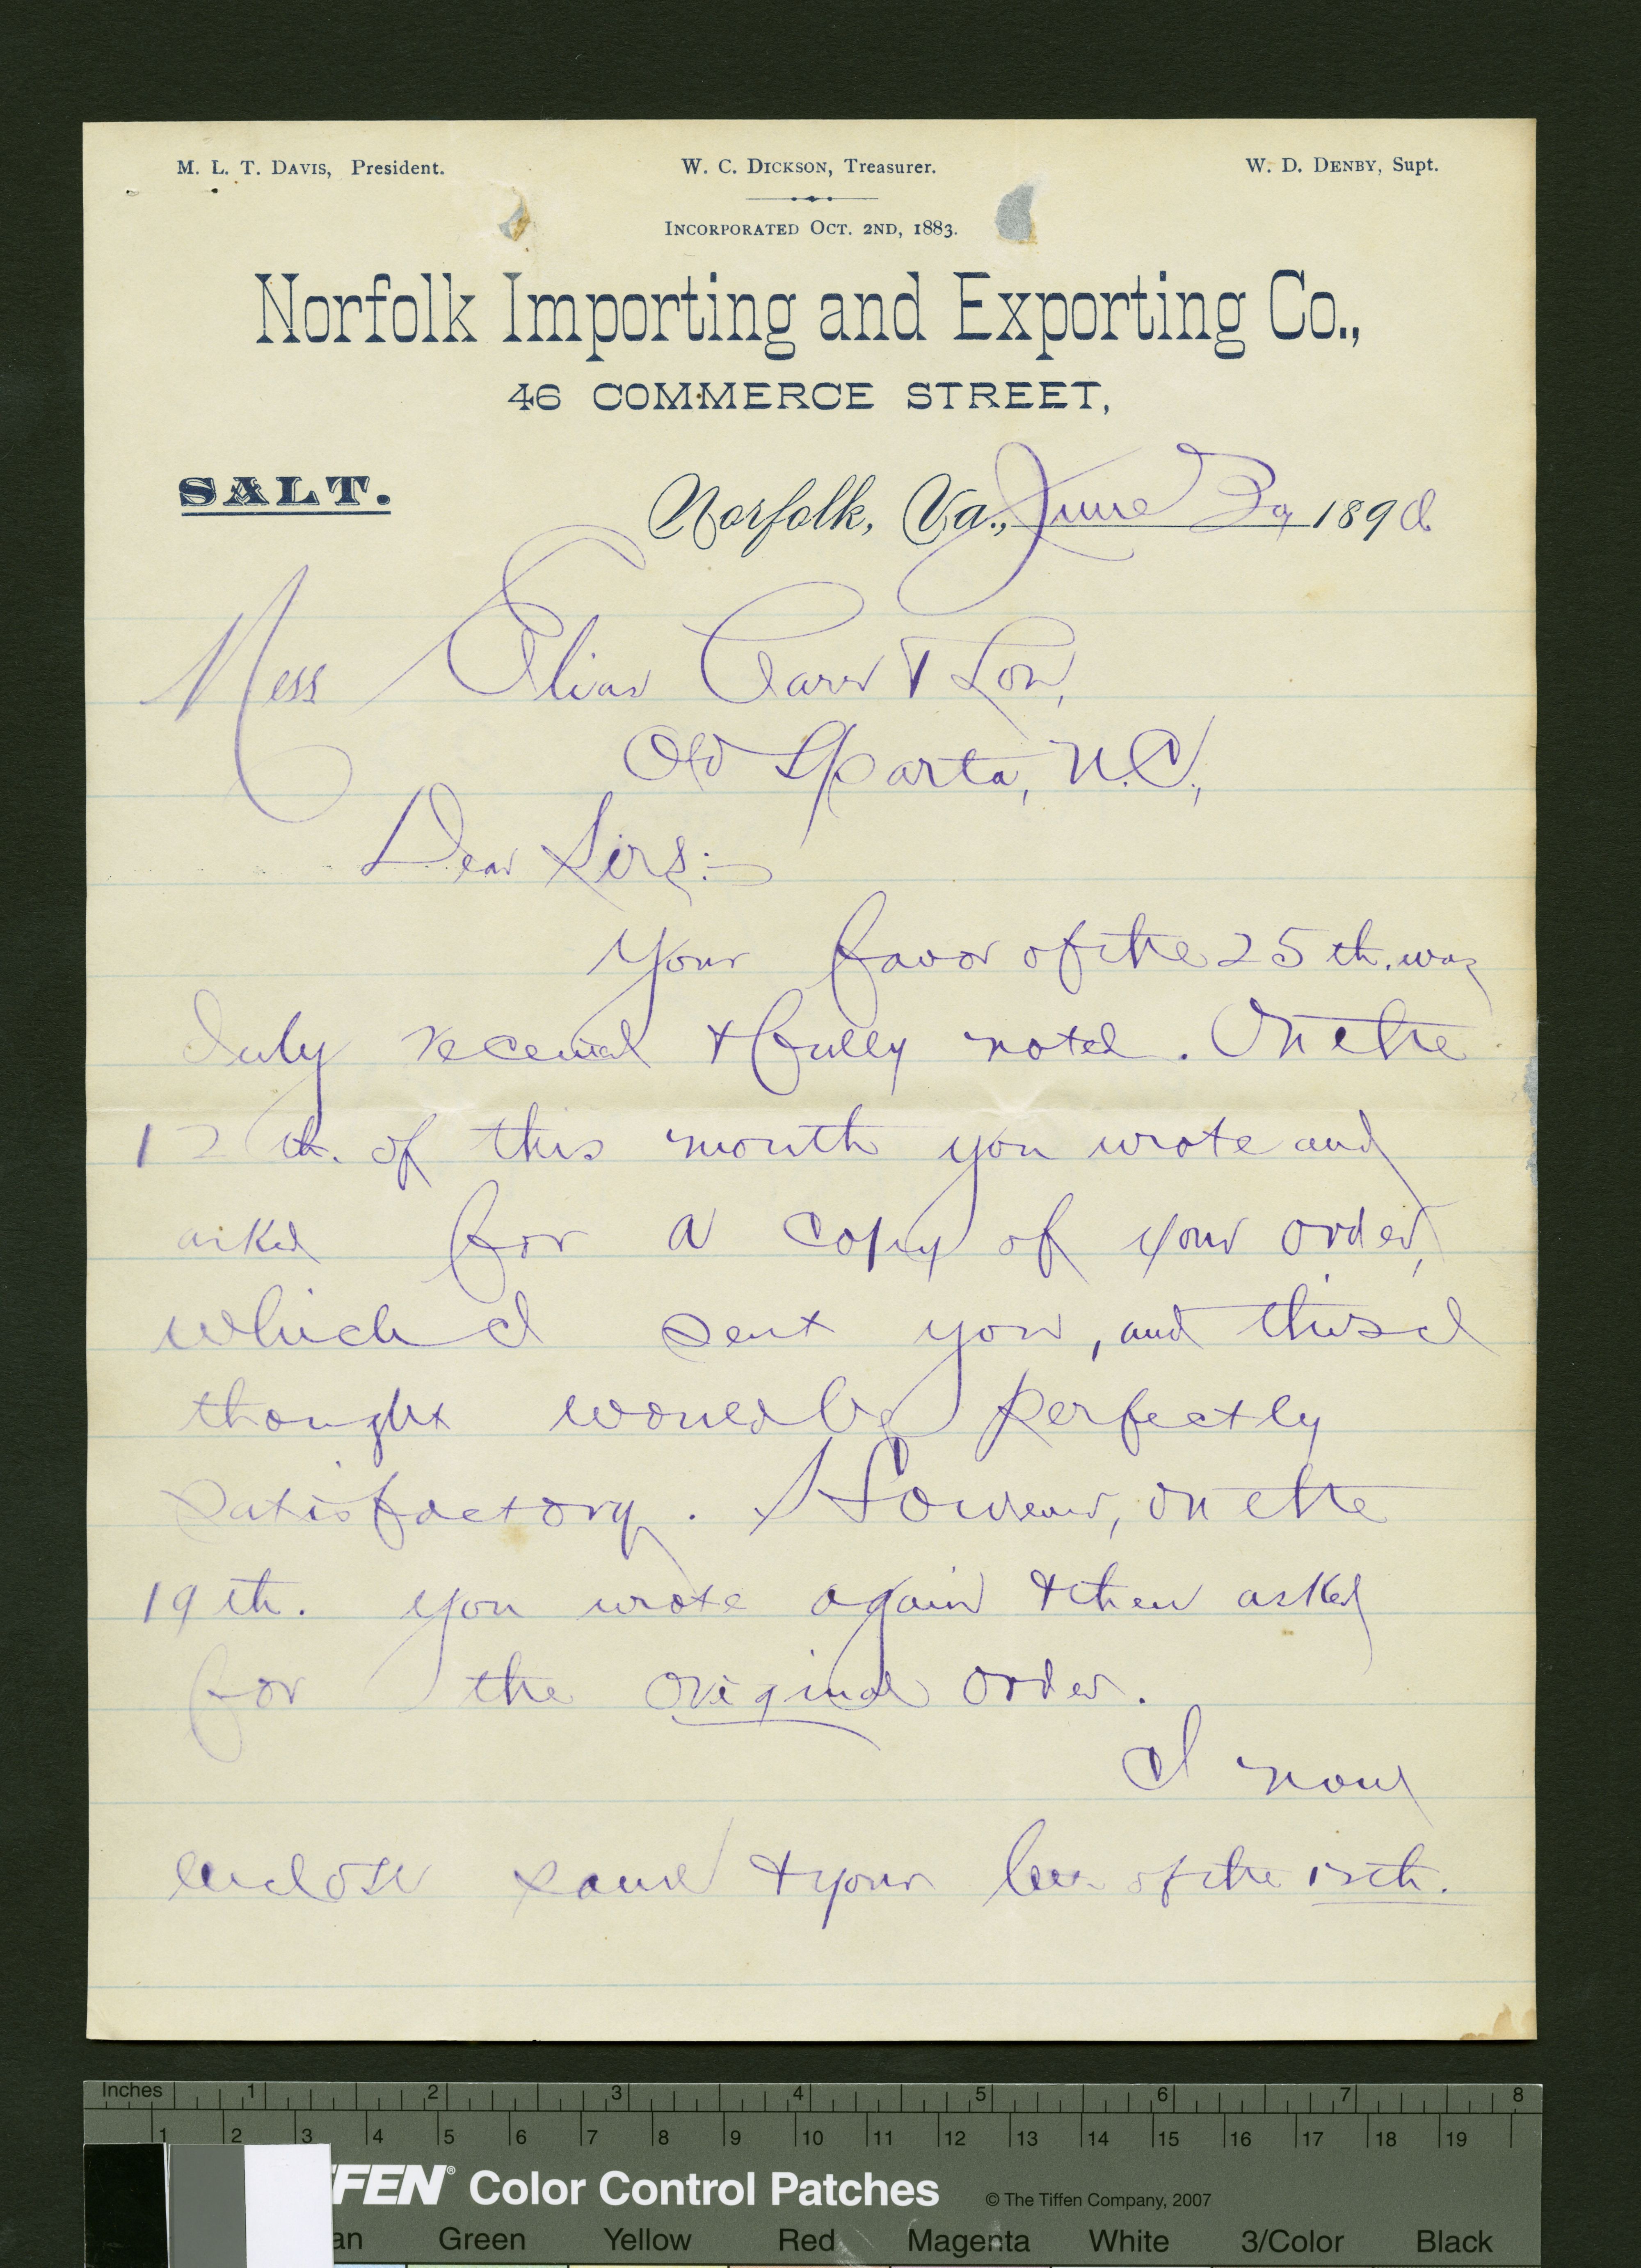 M. L. T. DAVIS, President. W. C. DICKSON, Treasurer. W. D. DENBY, Supt.
INCORPORATED OCT. 2ND, 1883.
Norfolk Importing and Exporting Co.,
46 COMMERCE STREET,
SALT. Norfolk, Va., June 30 1890.
Mess Elias Carr & Son,
Old Sparta, N.C.,
Dear Sirs:-
Your favor of the 25th. was
duly received & fully noted. On the
12th. of this month you wrote and
asked for a copy of your order,
which I sent you, and this I
thought would be perfectly
satisfactory. However, on the
19th. you wrote again & then asked
for the original order.
I now
enclose same & your of the 12th.
Inches 1 2 3 4 5 6 7 8
1 2 3 4 5 6 7 8 9 10 11 12 13 14 15 16 17 18 19
FFEN® Color Control Patches © The Tiffen Company, 2007
an Green Yellow Red Magenta White 3/Color Black